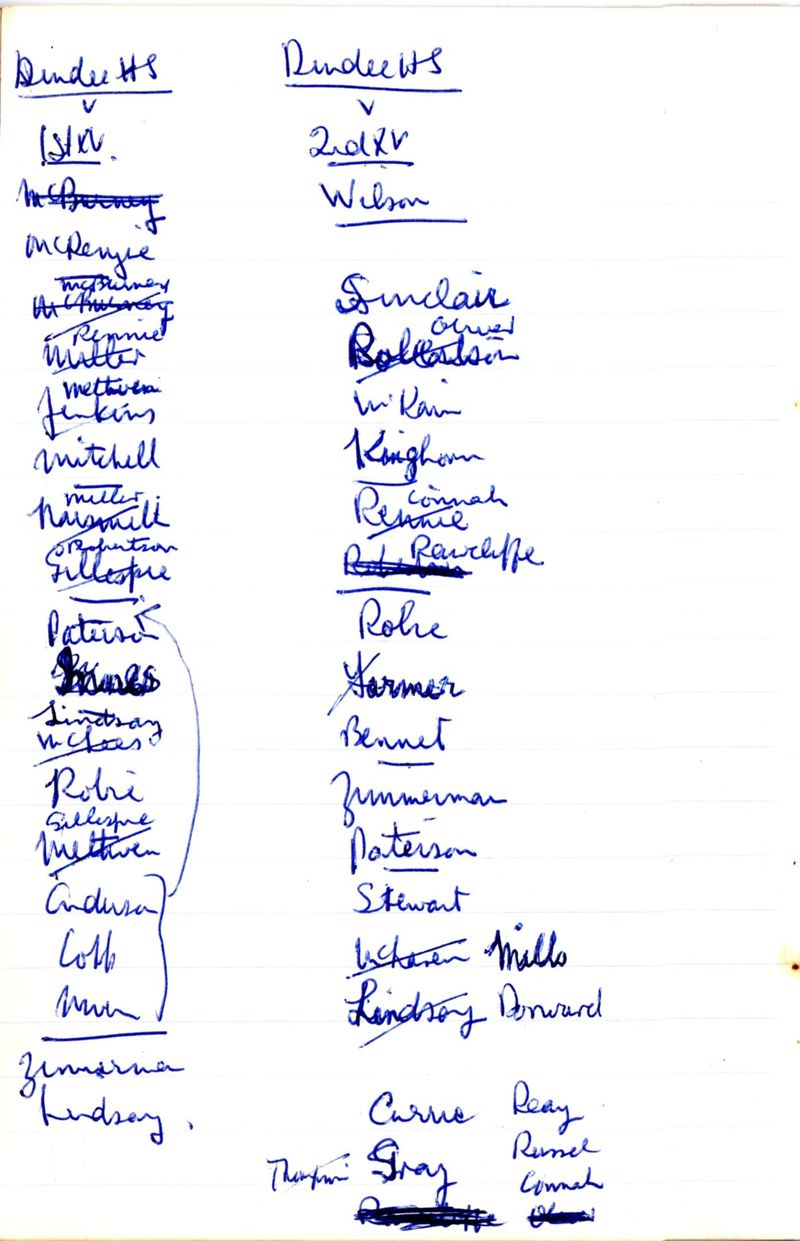 Dundee HS
v
1st XV.
McBurney
McKenzie
McBurney
McBurney
Rennie
Miller
Methven
Jenkins
Mitchell
Miller
Naismith
Robertson
Gillespie
Paterson
Lindsay
McLees
Robie
Gillespie
Methven
Anderson
Cobb
Zimmerman
Lindsay.
Dundee HS
v
2nd XV
Wilson
Sinclair
Oliver
Robertson
McKain
Kinghorn
Connah
Rennie
Rawcliffe
Robie
Farmer
Bennet
Zimmerman
Paterson
Stewart
McLaren Mills
Lindsay Dorward
Currie Reay
Thompson Gray Russel
Connah
Rawcliffe Oliver